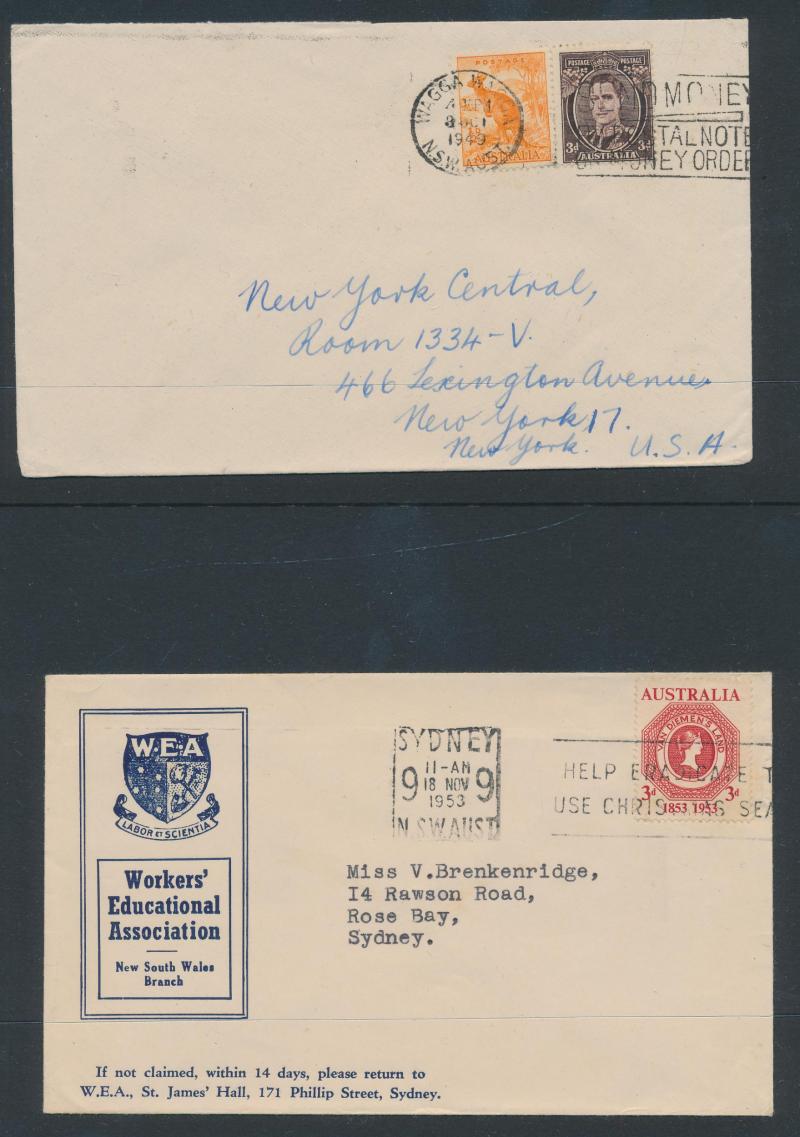 WAGGA WAGGA
1949
N.S.W. AUST
POSTAGE
AUSTRALIA
POSTAGE POSTAGE
3d AUSTRALIA 3d
MONEY
POSTAL NOTE
OR MONEY ORDER
New York Central,
Room 1334-V.
466 Lexington Avenue,
New York 17.
New York. U.S.A.
W.E.A
LABOR ET SCIENTIA
Workers'
Educational
Association
New South Wales
Branch
SYDNEY
11-AM
9 18 NOV 9
1953
N.S.W. AUST
AUSTRALIA
VAN DIEMEN'S LAND
3d 3d
1853 1953
HELP ERADICATE T
USE CHRISTMAS SEA
Miss V.Brenkenridge,
I4 Rawson Road,
Rose Bay,
Sydney.
If not claimed, within 14 days, please return to
W.E.A., St. James' Hall, 171 Phillip Street, Sydney.